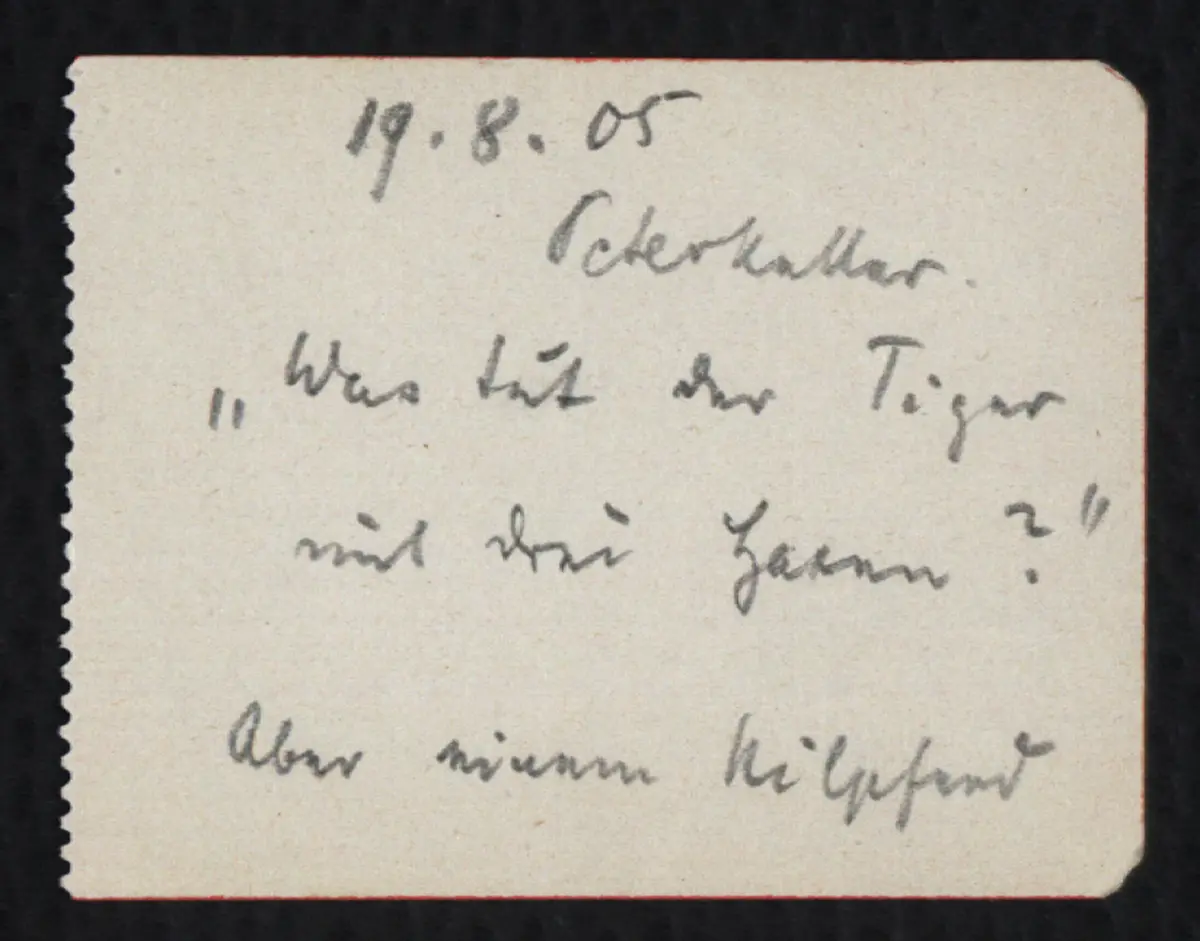 19.8.05
Peterkeller.
„Was tut der Tiger
mit drei Haxen?"
Aber einem Nilpferd